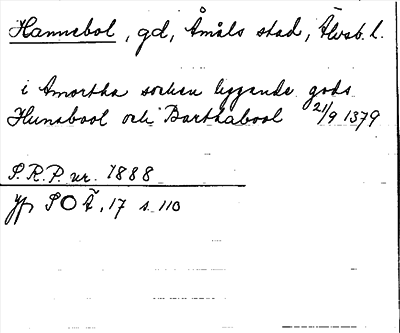 Hannebol, gd, Åmåls stad, Älvsb. l.
i Amortha socken liggande gods
Hunabool och Barthabool 21/9 1379
S.R.P. nr. 1888
Jfr SOÄ, 17 s. 110